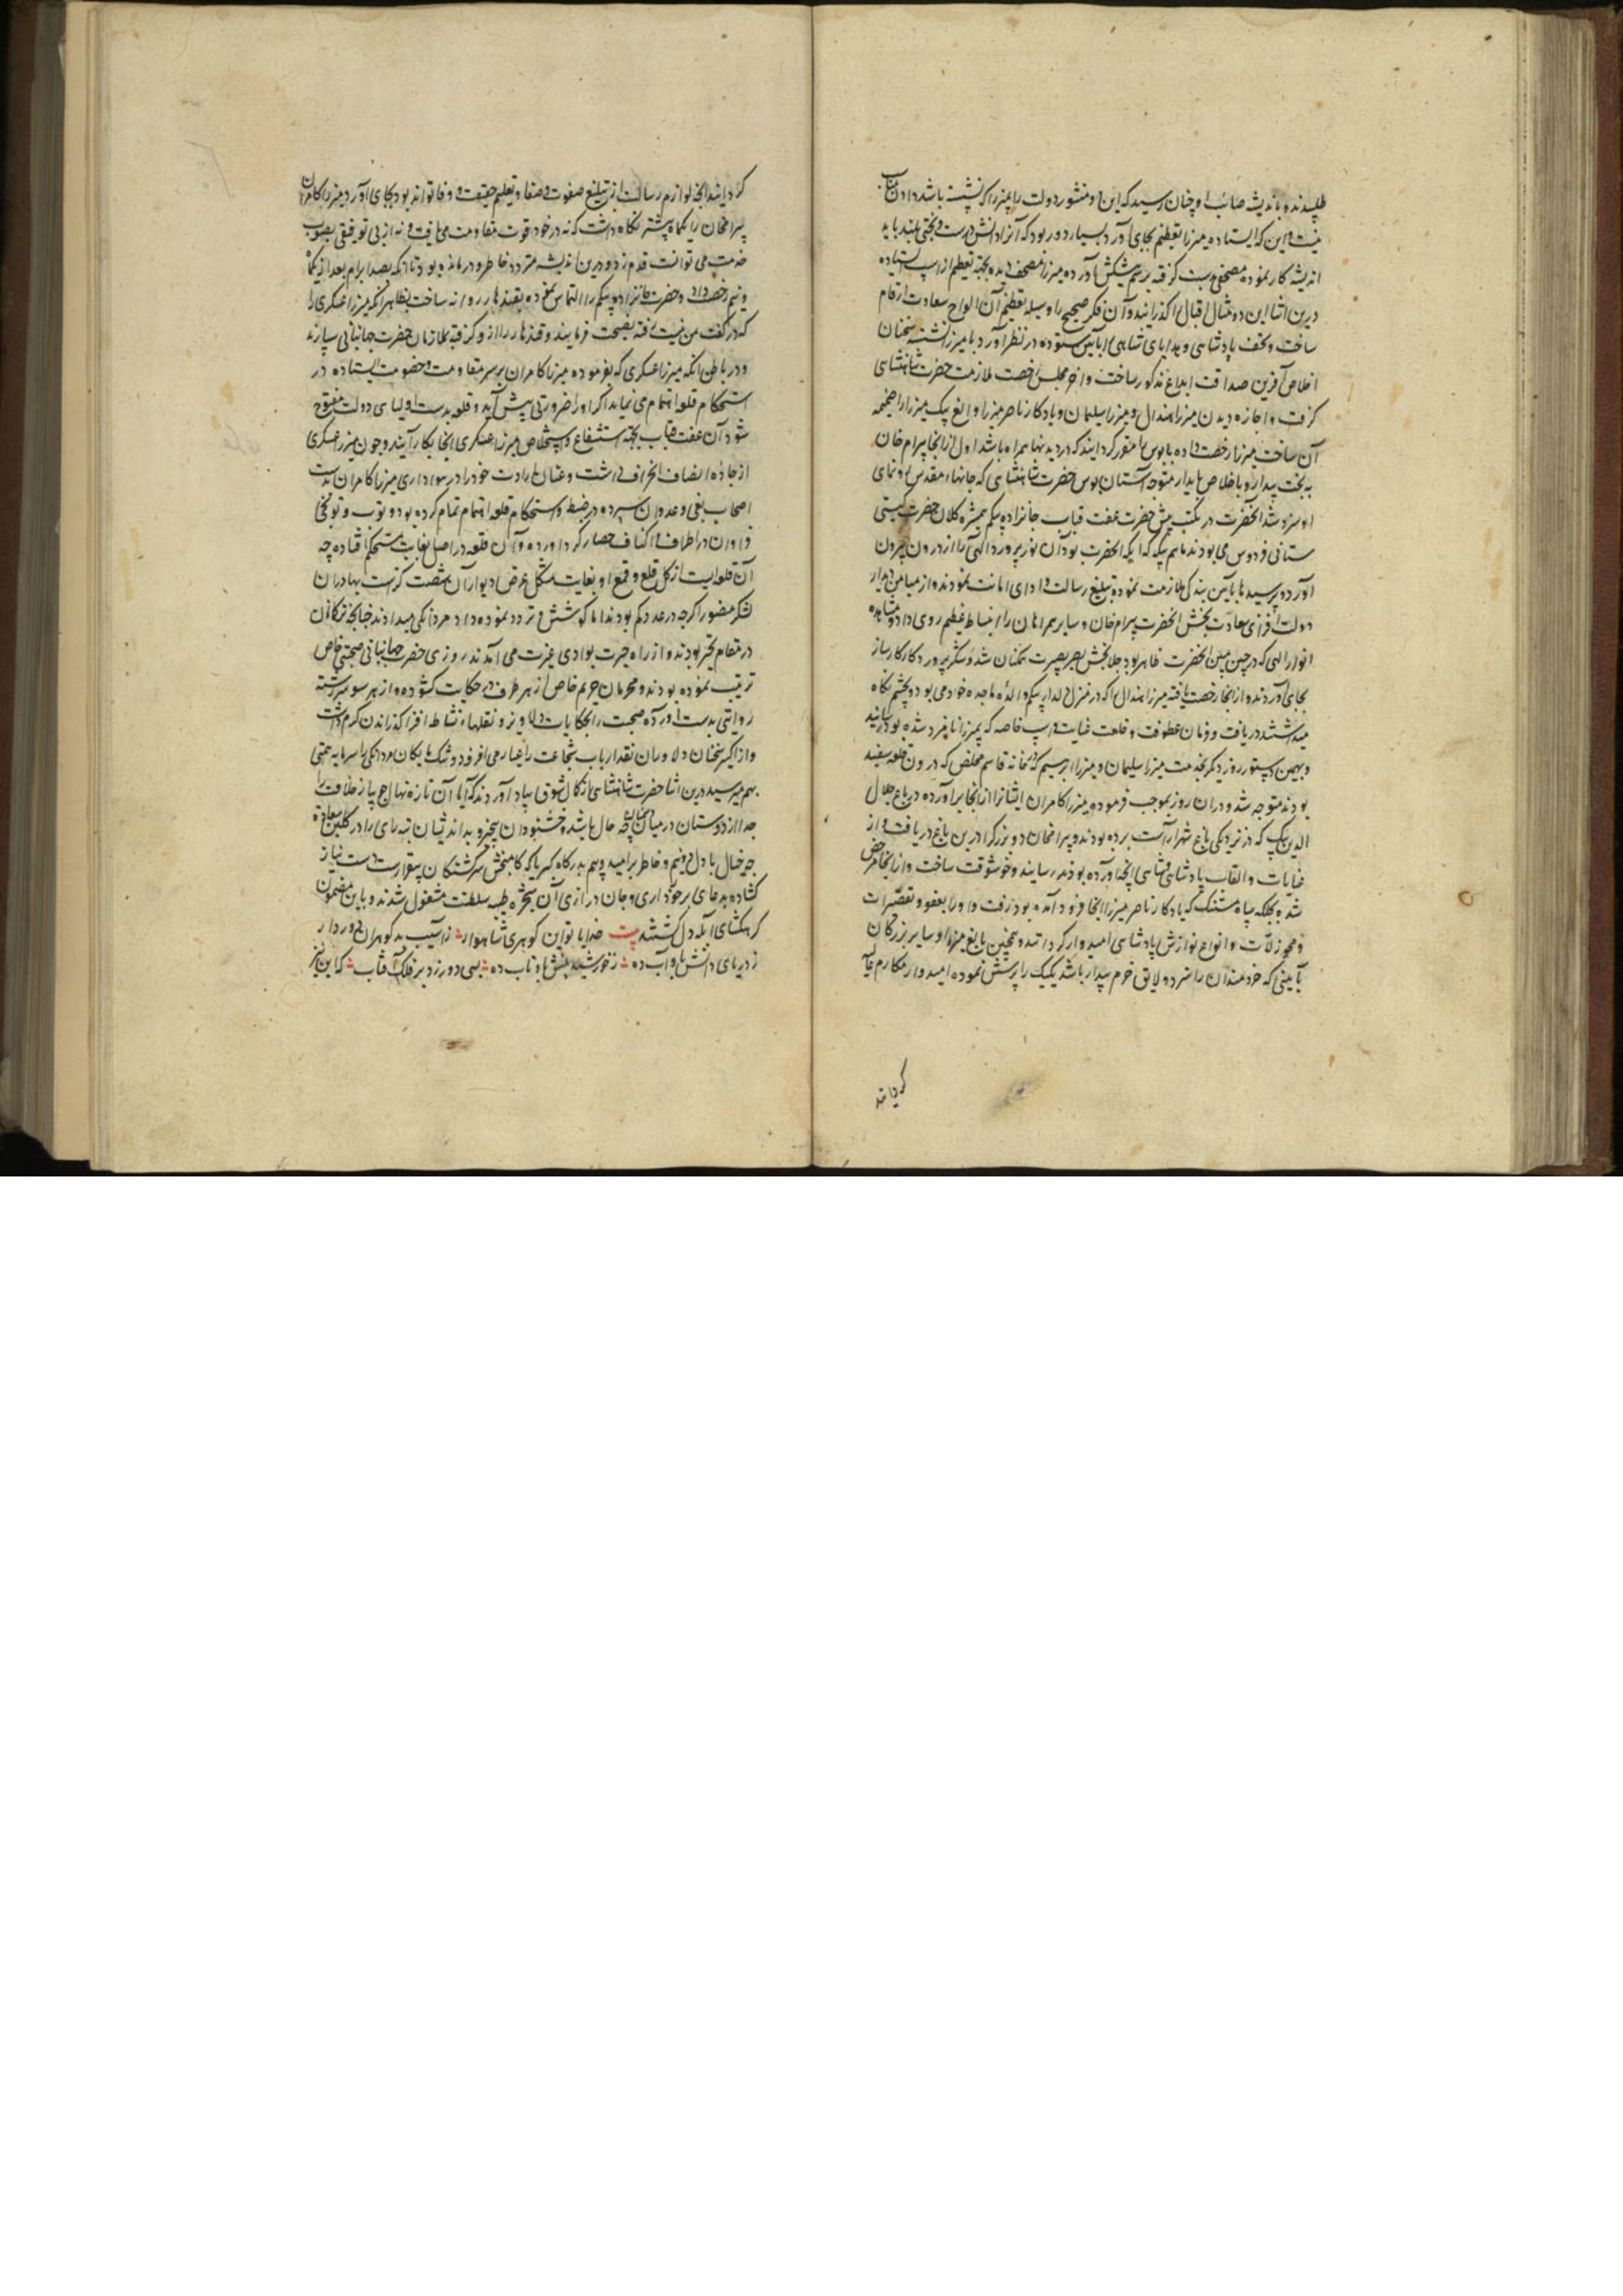 طلبیدند و باندیشه صائب او چنان رسید که این دو منشور دولت را بمیرزا که نشسته باشد دادن مناسب
نیست و این که ایستاده میرزا تعظیم بجای آورد بسیار دور بود که آنرا دانش درست و بختی بلند باید
اندیشه کار نموده مصحفی بدست گرفته برسم پیشکش آورده میرزا مصحف دیده بجهة تعظیم از اسپ ایستاده
درین اثنا این دو مثال اقبال گذرانید و آن فکر صحیح را وسیله تعظیم آن الواح سعادت ارقام
ساخت و تحف پادشاهی و هدایای شاهی را بآیین ستوده در نظر آورد با میرزا نشسته سخنان
اخلاص آفرین صداقت ابداع مذکور ساخت و آخر مجلس رخصت ملازمت حضرت شاهنشاهی
گرفت و اجازه دیدن میرزا هندال و میرزا سلیمان و یادگار ناصر میرزا و الغ بیک میرزا را ضمیمه
آن ساخت میرزا رخصت داده بابوس را مقرر گردانید که در دیدنها همراه باشد اول از انجا بیرام خان
به بخت بیدار و باخلاص پایدار متوجه آستان بوس حضرت شاهنشاهی که جانهاء مقدس رونمای
او سزد شد آنحضرت در مکتب پیش حضرت عفت قباب خانزاده بیگم همشیره کلان حضرت گیتی
ستانی فردوس می بودند ماهم بیگه که اتکه آنحضرت بود آن نور پرورد الهی را از درون بیرون
آورد و پرسیدها بآیین بندگی ملازمت نموده تبلیغ رسالت و ادای امانت نمودند و از میامن دیدار
دولت افزای سعادت بخش آنحضرت بیرام خان و سایر همراهان را انبساط عظیم روی داد و مشاهده
انوار الهی که در چین مبین آنحضرت ظاهر بود جلابخش بصر بصیرت همکنان شد و شکر پروردگار کارساز
بجای آوردند و از انجا رخصت یافته میرزا هندال را که در منزل دلدار بیگم والده ماجده خود می بود و بچشم نگاه
میداشتند دریافت و فرمان عطوفت و خلعت عنایت و اسپ خاصه که بمیرزا نامزد شده بود رسانید
و بهمین دستور روز دیگر بخدمت میرزا سلیمان و میرزا ابراهیم که در خانه قاسم مخلص که درون قلعه سفید
بودند متوجه شد و دران روز بموجب فرموده میرزا کامران ایشانرا از انجا برآورده در باغ جلال
الدین بیگ که در نزدیکی باغ شهرآراست برده بودند و بیرامخان دو بزرگ را درین باغ دریافت و از
عنایات و القاب پادشاهی و شاهی آنچه آورده بودند رسانید و خوشوقت ساخت و از انجا مرخص
شده بجلکه سیاه سنگ که یادگار ناصر میرزا انجا فرود آمده بود رفت و او را بعفو و تقصیرات
و محو زلات و انواع نوازش پادشاهی امیدوار گردانید و همچنین بالغ میرزا و سایر بزرگان
بآیینی که خردمندان را سزد و لایق خرم بیدار باشد یکیک را پرسش نموده امیدوار مکارم
گردانید
گردانید آنچه لوازم رسالت از تبلیغ صفوت و صفا و تعلیم حقیقت و وفا تواند بود بجای آورد میرزا کامران
بیرامخان را یکماه بیشتر نگاه داشت که نه در خود قوت مقاومت می یافت و نه از بی توفیقی بصوب
خدمت می توانست قدم زد و درین اندیشه متردد خاطر و درمانده بود تا آنکه بصد ابرام بعد از یکماه
و نیم رخصت داد و حضرت خانزاده بیگم را التماس نموده بقندهار روانه ساخت بظاهر آنکه میرزا عسکری را
که در گفت من نیست رفته نصیحت فرمایند و قندهار را ازو گرفته بملازمان حضرت جهانبانی سپارند
و در باطن آنکه میرزا عسکری که بفرموده میرزا کامران بر سر مقاومت و خصومت ایستاده در
استحکام قلعه اهتمام می نماید اگر او را ضرورتی پیش آید و قلعه بدست اولیای دولت مفتوح
شود آن عفت قباب بجهة استشفاع و استخلاص میرزا عسکری انجا بکار آیند و چون میرزا عسکری
از جاده انصاف انحراف داشت و عنان ارادت خود را در هواداری میرزا کامران بدست
اصحاب بغی و عدوان سپرده در ضبط و استحکام قلعه اهتمام تمام کرده بود و توپ و تفنگ
فراوان در اطراف و اکناف حصار گرد آورده و آن قلعه در اصل بغایت مستحکم افتاده چه
آن قلعه ایست از گل قلع و قمع او بغایت مشکل عرض دیوار آن شصت گزست بهادران
لشکر منصور اگرچه در عدد کم بودند اما کوشش و تردد نموده داد مردانگی میدادند چنانچه ترکانان
در مقام تحیر بودند و از راه حیرت بوادی غیرت می آمدند روزی حضرت جهانبانی صحبتی خاص
ترتیب نموده بودند و محرمان حریم خاص از هر طرف در حکایت گشوده و از هر سو سررشته
روایتی بدست آورده صحبت را بحکایات دلاویز و نقلهاء نشاط افزا گذراندن گرم داشت
و از اکسیر سخنان دلاوران نقد ارباب شجاعت را عیار می افزود و تنگ مایگان مردانگی را سرمایه همتی
بهم میرسید درین اثنا حضرت شاهنشاهی را از کمال شوق بیاد آوردند که آیا آن تازه نهال چار باغ خلافت را
جدا از دوستان در میان دشمنان چه حال باشد و خشنودان بیخبر و بداندیشان تبه رای را در گلبن سعادة
چه خیال با دل دو نیم و خاطر پر امید و بیم بدرگاه کبریا که کامبخش سرگشتگان بیقرارست دست نیاز
گشاده بدعای برخورداری و جان درازی آن شجره طیبه سلطنت مشغول شدند و باین مضمون
گرهگشای آبله دل گشتند بیت خدایا تو این گوهری شاهوار ز آسیب بد گوهران دور دار
ز دریای دانش باو آب ده ز خورشید بینش باو تاب ده بسی دور زد بر فلک آفتاب که این نیز